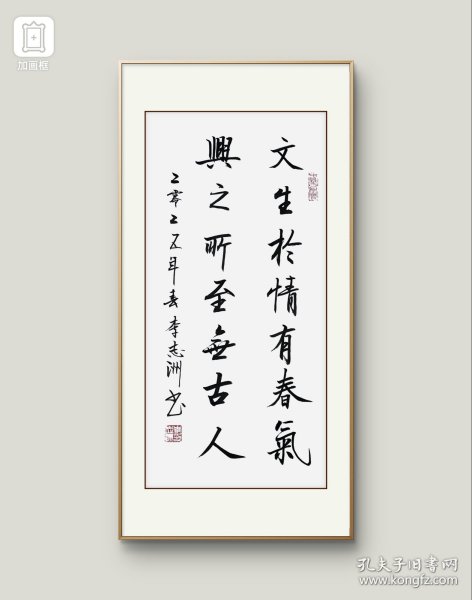 加画框
文生於情有春氣
興之所至無古人
二零二五年春李志洲书
孔夫子旧书网
www.kongfz.com